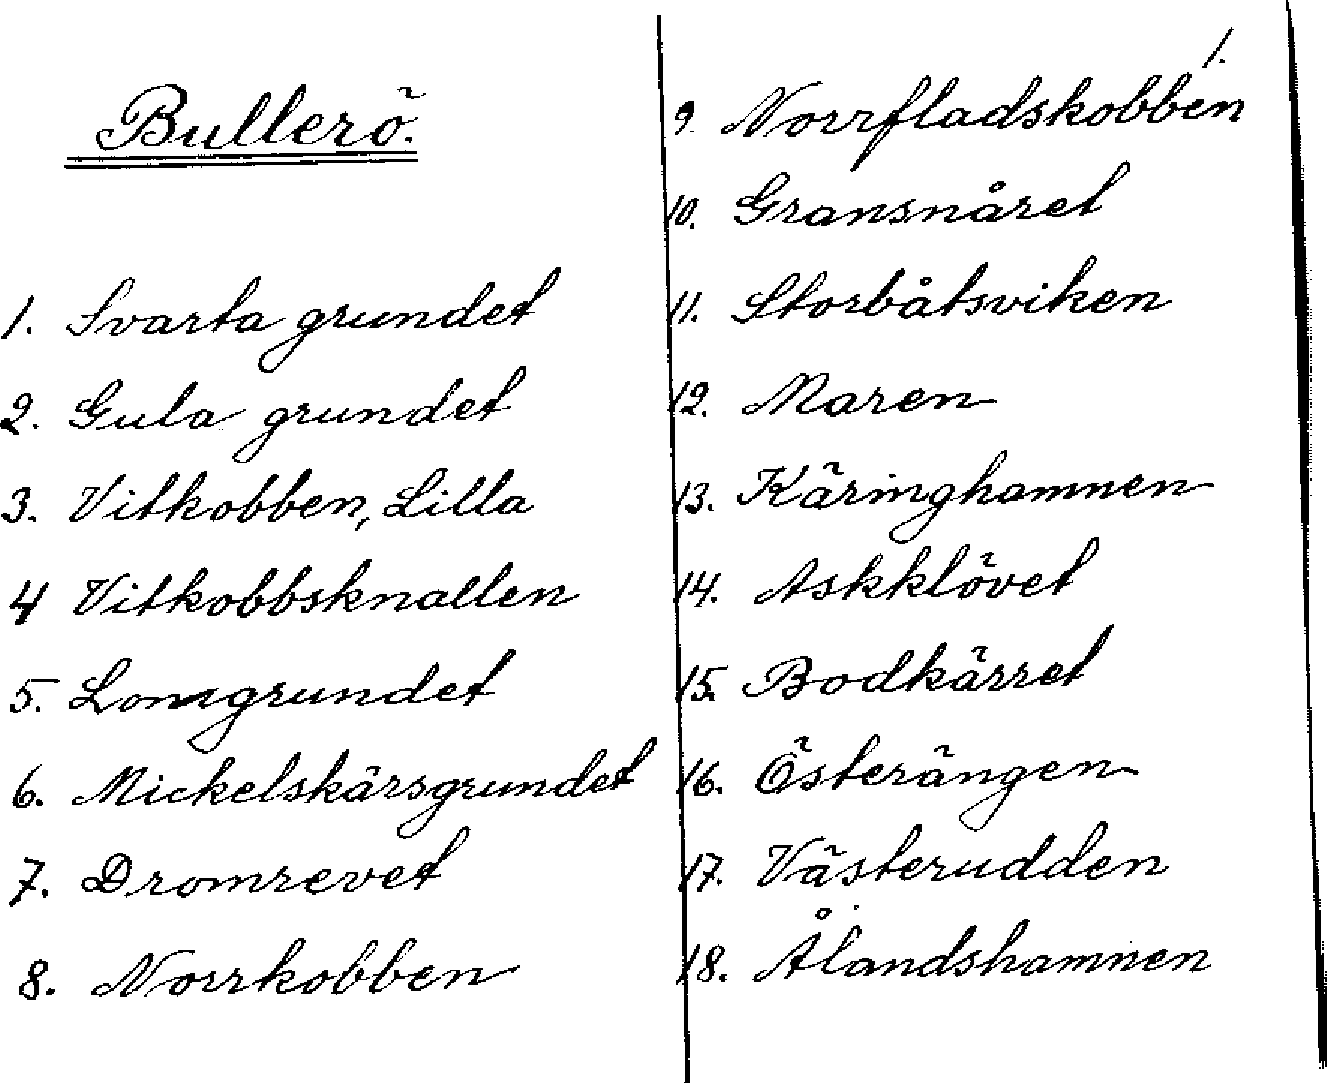 Bullerö.
1. Svarta grundet
2. Gula grundet
3. Vitkobben, Lilla
4 Vitkobbsknallen
5. Lomgrundet
6. Mickelskärsgrundet
7. Dromrevet
8. Norrkobben
1.
9. Norrfladskobben
10. Gransnåret
11. Storbåtsviken
12. Maren
13. Käringhamnen
14. Askklövet
15. Bodkärret
16. Österängen
17. Västerudden
18. Ålandshamnen